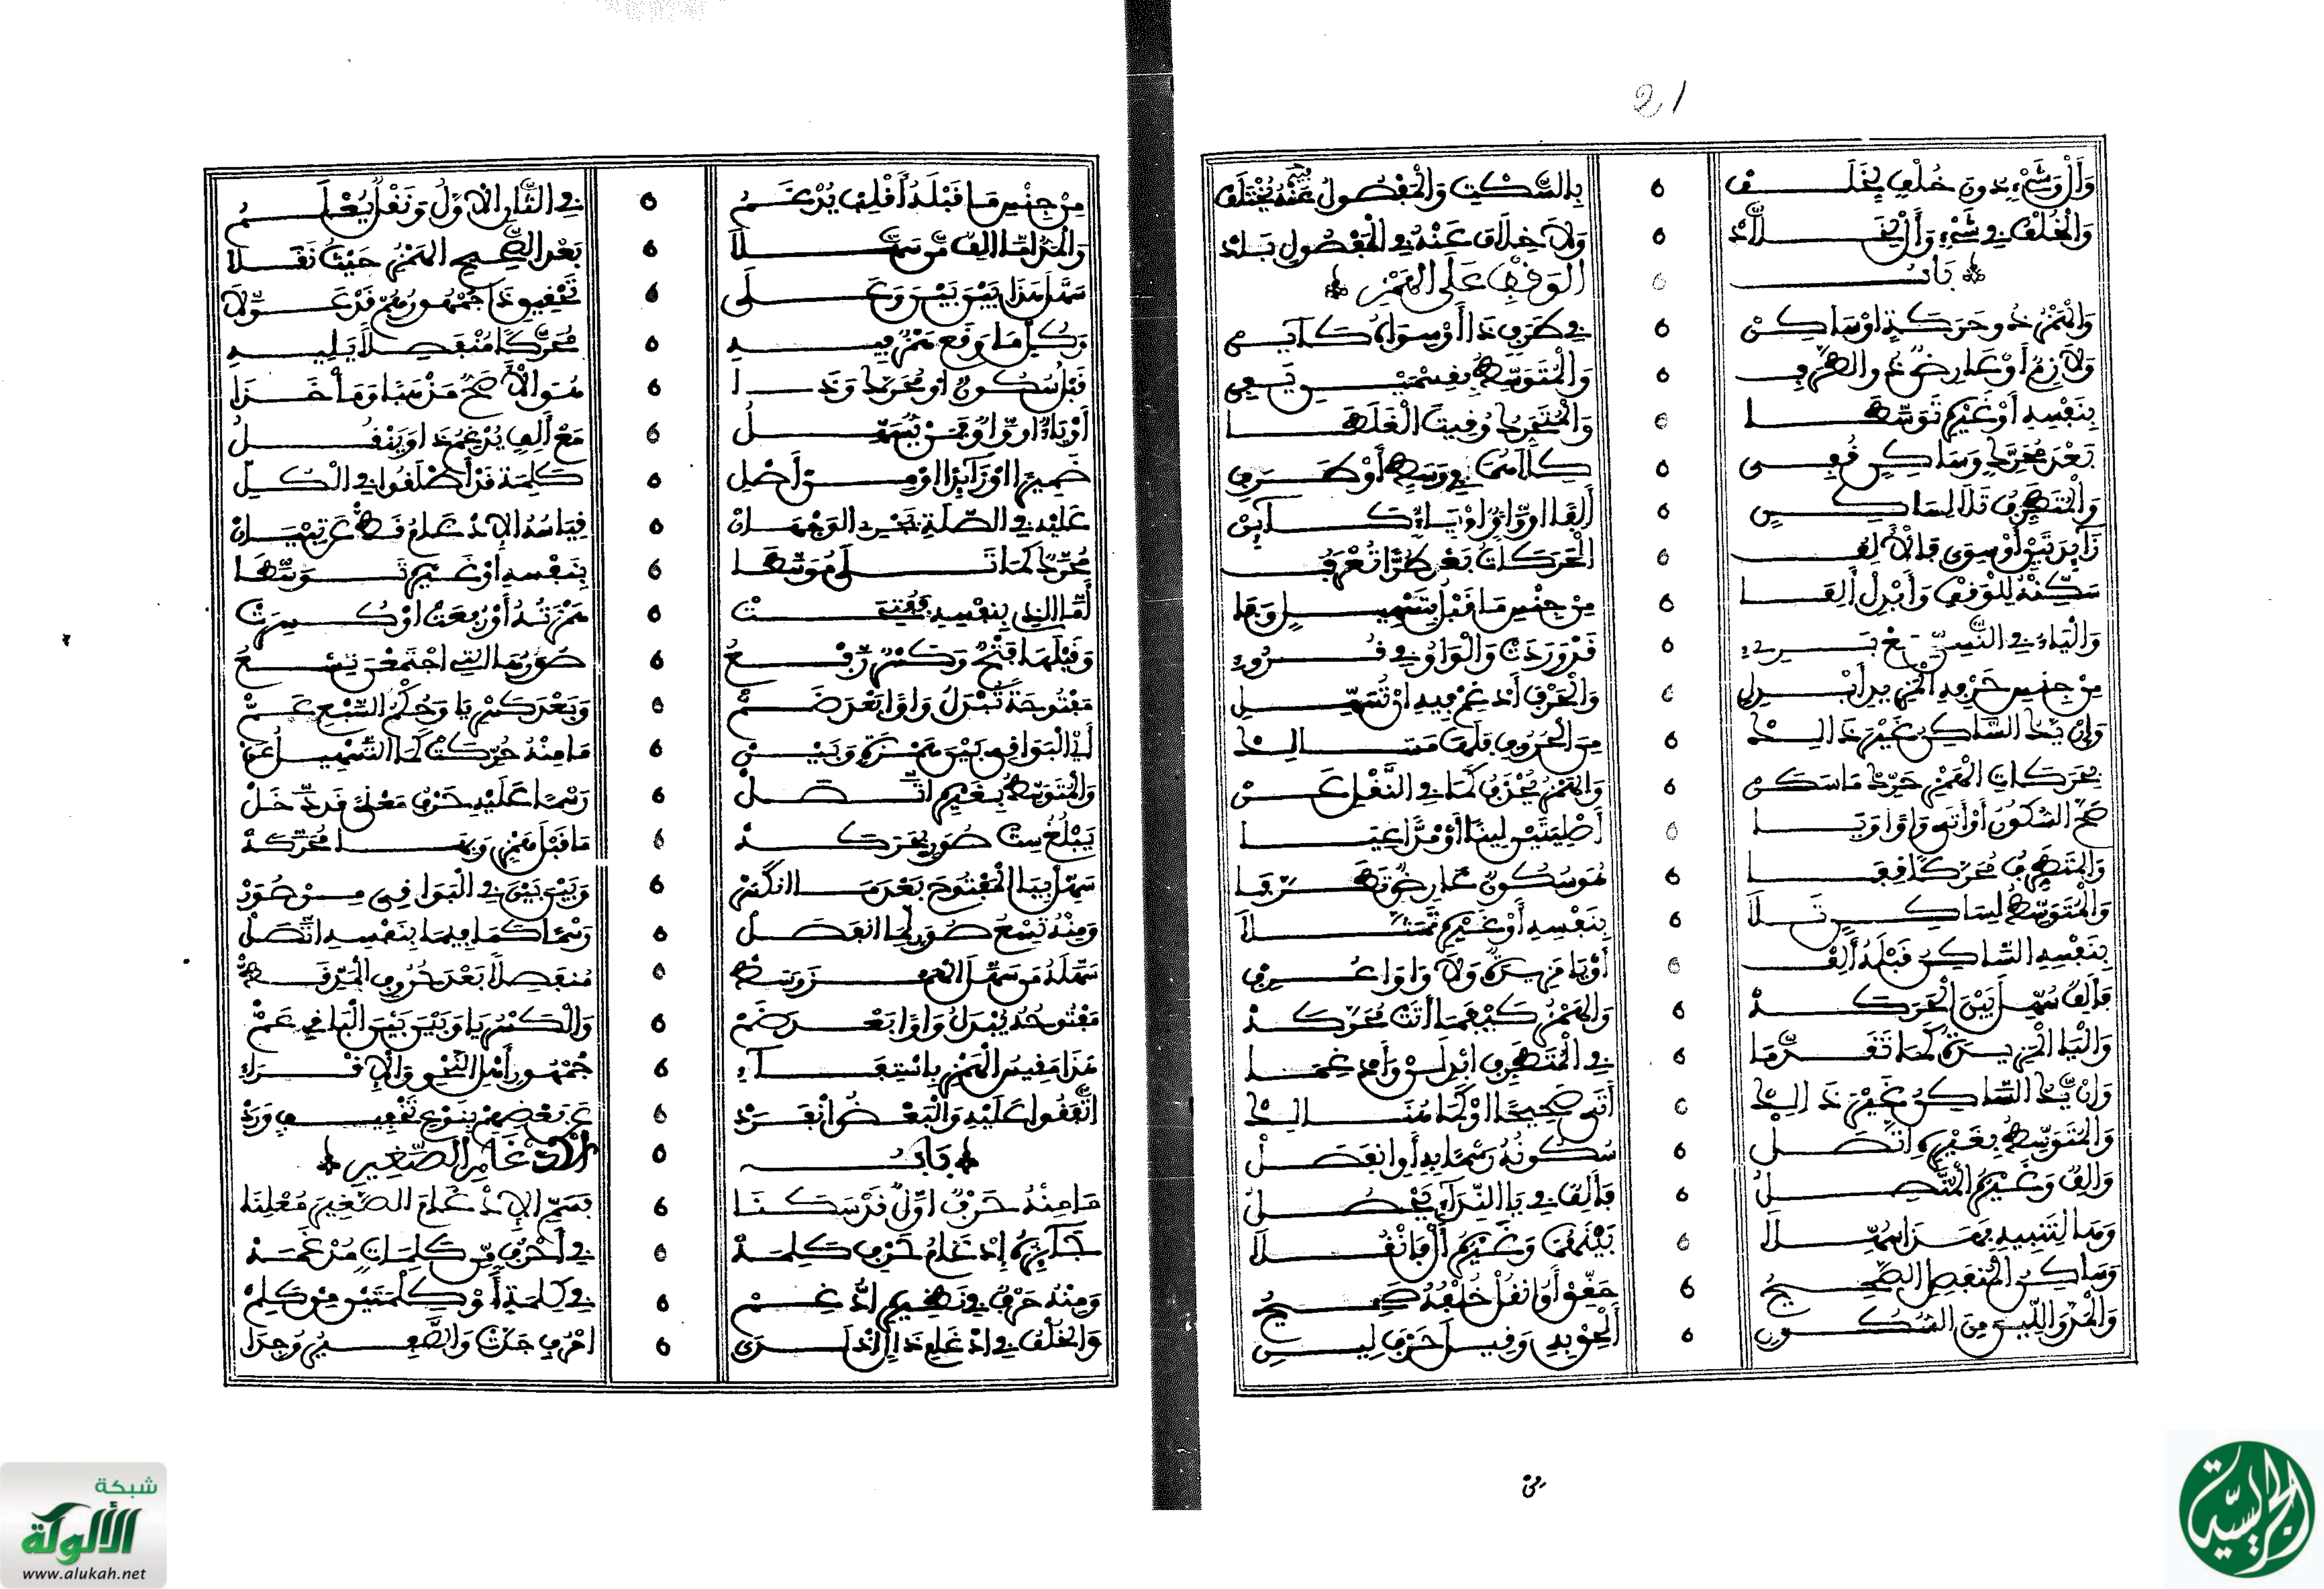 21
وَأَلْ وَشَيْءٍ دُونَ خُلْفٍ يُخْلَفْ ٥ بِالسَّكْتِ وَالْمَفْصُولُ عَنْهُ يُخْتَلَفْ
وَالْخُلْفُ فِي شَيْءٍ وَأَلْ لِخَلَّادْ ٥ وَلَا خِلَافَ عَنْهُ فِي الْمَفْصُولِ بَادْ
بَابُ ٥ الوَقْفِ عَلَى الهَمْزِ
وَالْهَمْزُ ذُو حَرَكَةٍ اوْ سَاكِنْ ٥ فِي طَرَفٍ ذَا أَوْ سِوَاهُ كَآيِنْ
وَلَازِمٌ أَوْ عَارِضٌ ذُو الطَّرَفِ ٥ وَالْمُتَوَسِّطْ بِقِسْمَيْنِ يَفِي
بِنَفْسِهِ أَوْ غَيْرِهِ تَوَسَّطَا ٥ وَالْمُتَحَرِّكْ
بَعْدَ مُحَرَّكٍ وَسَاكِنٍ ٥ كِلَاهُمَا فِي وَسَطٍ أَوْ طَرَفِ
وَالْمُتَطَرِّفُ تَلَا لِسَاكِنِ ٥ أَلِفًا اوْ وَاوًا اوْ يَاءً كَآيِنْ
زَايِدَتَيْنِ أَوْ سِوَى فَالْأَلِفْ ٥ الْحَرَكَاتُ بَعْدَ طُرًّا تُعْرَفْ
سَكِّنْهُ لِلْوَقْفِ وَأَبْدِلْ أَلِفَا ٥ مِنْ جِنْسِ مَا قَبْلُ بِتَسْهِيلٍ وَفَا
وَالْيَاءُ فِي النَّسِيءُ مَعْ بَرِيءُ ٥ قَدْ وَرَدَتْ وَالْوَاوُ فِي قُرُوءِ
مِنْ جِنْسِ حَرْفِ الْمَزِيدِ أَبْدِلِ ٥ وَالْحَرْفَ أَدْغِمْ فِيهِ أَوْ تُسَهِّلِ
وَإِنْ يَكُ السَّاكِنُ غَيْرَ ذَالِكْ ٥ مِنَ الْحُرُوفِ فَلَهُ مَسَالِكْ
بِحَرَكَاتِ الْهَمْزِ حَرِّكْ مَا سَكَنْ ٥ وَالْهَمْزُ يُحْذَفُ كَمَا فِي النَّقْلِ عَنْ
صَحَّ السُّكُونُ أَوْ أَتَى وَاوًا وَيَا ٥ أَصْلِيَتَيْنِ لِينًا أَوْ مَدًّا عِيَا
وَالْمُتَطَرِّفُ مُحَرَّكًا قِفَا ٥ هُوَ سُكُونٌ عَارِضٌ تَطَرَّفَا
وَالْمُتَوَسِّطْ لِسَاكِنٍ تَلَا ٥ بِنَفْسِهِ أَوْ غَيْرِهِ تَمَثَّلَا
بِنَفْسِهِ السَّاكِنُ قَبْلَهُ أَلِفْ ٥ أَوْ يَا مَزِيدَةٌ وَلَا وَاوًا عُرِفْ
فَأَلِفٌ سُهِّلَ بَيْنَ الْحَرَكَهْ ٥ وَالْهَمْزُ كَيْفَمَا أَتَتْ مُحَرَّكَهْ
وَالْيَا الْمَزِيدَةُ كَمَا تَقَدَّمَا ٥ فِي الْمُتَطَرِّفِ ابْدِلَنْ وَأَدْغِمَا
وَإِنْ يَكُ السَّاكِنُ غَيْرَ ذَالِكْ ٥ أَتَى صَحِيحًا اوْ كَمَا هُنَالِكْ
وَالْمُتَوَسِّطْ بِغَيْرِهِ اتَّصَلْ ٥ سُكُونُهُ رَسْمًا بِهِ أَوِ انْفَصَلْ
وَأَلِفٌ وَغَيْرُهُ الْمُتَّصِلُ ٥ فَأَلِفٌ فِي يَا النِّدَاءِ يَحْصُلُ
وَهَا لِتَنْبِيهٍ فَهَذَا سُهِّلَا ٥ بَيْنَهُمَا وَغَيْرُهُ أَلْ فَانْقُلَا
وَسَاكِنُ الْمُنْفَصِلِ الصَّحِيحُ ٥ حَقِّقْ أَوِ انْقُلْ خُلْفُهُ صَحِيحُ
وَالْمَدُّ وَاللِّينُ مِنَ السُّكُونِ ٥ أَلْحِقْ بِهِ وَقِيلَ حَرْفُ لِينِ
مِنْ جِنْسِ مَا قَبْلَهُ أَقْلِبْ يُدْغَمُ ٥ فِي الثَّانِ الْأَوَّلُ وَنَقْلٌ يُعْلَمُ
وَالْمَدُّ لِلْأَلِفِ مَنْ سَهَّلَا ٥ بَعْدَ الصَّحِيحِ الهَمْزُ حَيْثُ نَقَلَا
سَهَّلَ هَذَا بَيْنَ بَيْنَ وَعَلَى ٥ تَحْقِيقِ ذَا جُمْهُورُهُمْ قَدْ عَوَّلَا
وَكُلُّ مَا وَقَعَ هَمْزٌ فِيهِ ٥ مُحَرَّكًا مُنْفَصِلًا يَلِيهِ
قَبْلُ سُكُونٌ أَوْ مُحَرَّكٌ وَذَا ٥ هُوَ الْأَصَحُّ مَذْهَبًا وَمَأْخَذَا
أَوْ يَاءٌ اوْ وَاوٌ فَمَنْ يُسَهِّلُ ٥ مَعْ أَلِفٍ يُدْغِمُ ذَا أَوْ يَنْقُلُ
ضَمِيرًا اوْ زَائِدًا اوْ مِنْ أَصْلِ ٥ كَلِمَةٍ قَدْ أَطْلَقُوا فِي الْكُلِّ
عَلَيْهِ فِي الصِّلَةِ يَجْرِي الوَجْهَانْ ٥ قِيَاسُهُ الْإِدْغَامُ فَقَطْ عَنْ تِبْيَانْ
مُحَرَّكًا كَمَا تَلَى مُوَسَّطَا ٥ بِنَفْسِهِ اوْ غَيْرِهِ تَوَسَّطَا
أَمَّا الذِي بِنَفْسِهِ فَفُتِحَتْ ٥ هَمْزَتُهُ أَوْ رُفِعَتْ أَوْ كُسِرَتْ
وَقَبْلَهَا فَتْحٌ وَكَسْرٌ رَفْعُ ٥ صُوَرُهَا الَّتِي اجْتَمَعْنَ تِسْعُ
مَفْتُوحَةً تُبْدَلُ وَاوًا بَعْدَ ضَمّْ ٥ وَبَعْدَ كَسْرٍ يَا وَحُكْمُ السَّبْعِ عَمّْ
أَيِ الْبَوَاقِي بَيْنَ هَمْزَةٍ وَبَيْنْ ٥ مَا مِنْهُ حُرِّكَتْ كَمَا التَّسْهِيلُ عَنْ
وَالْمُتَوَسِّطْ بِغَيْرِهِ اتَّصَلْ ٥ رَسْمًا عَلَيْهِ حَرْفُ مَعْنًى قَدْ دَخَلْ
يَبْلُغُ سِتَّ صُوَرٍ بِحَرَكَهْ ٥ مَا قَبْلَ هَمْزٍ وَبِهَا مُحَرَّكَهْ
سَهِّلْ بِيَا الْمَفْتُوحَ بَعْدَ مَا انْكَسَرْ ٥ وَبَيْنَ بَيْنَ فِي الْبَوَاقِي مِنْ صُوَرْ
وَمِنْهُ تِسْعُ صُوَرٍ لِمَا انْفَصَلْ ٥ رَسْمًا كَمَا فِيمَا بِنَفْسِهِ اتَّصَلْ
سَهَّلَهُ مَنْ سَهَّلَ الْهَمْزَ وَسَطْ ٥ مُنْفَصِلًا بَعْدَ حُرُوفِ الْمَدِّ قَطْ
مَفْتُوحُهُ يُبْدَلُ وَاوًا بَعْدَ ضَمّْ ٥ وَالْكَسْرِ يَا وَبَيْنَ بَيْنَ الْبَاقِي عَمّْ
هَذَا مَقِيسُ الْهَمْزِ بِاسْتِيفَاءِ ٥ جُمْهُورُ أَهْلِ النَّحْوِ وَالْإِقْرَاءِ
اتَّفَقُوا عَلَيْهِ وَالْبَعْضُ انْفَرَدْ ٥ عَنْ بَعْضِهِمْ بِنَوْعِ تَخْفِيفٍ وَرَدْ
بَابُ ٥ الْإِدْغَامِ الصَّغِيرِ
مَا مِنْهُ حَرْفٌ أَوَّلٌ قَدْ سَكَنَا ٥ فَسَمِّ الْإِدْغَامَ الصَّغِيرَ مُعْلِنَا
جَائِزُهُ إِدْغَامُ حَرْفِ كَلِمَهْ ٥ فِي أَحْرُفٍ مِنْ كَلِمَاتٍ مُدْغَمَهْ
وَمِنْهُ حَرْفٌ فِي نَظِيرِهِ ادُّغِمْ ٥ فِي كَلِمَةٍ أَوْ كِلْمَتَيْنِ مِنْ كَلِمْ
وَالْخُلْفُ فِي ادْغَامِ ذَالِ إِذْ لَدَى ٥ احْرُفٍ جَدَّتْ وَالصَّفِيرُ وُجِدَا
شبكة
الألوكة
www.alukah.net